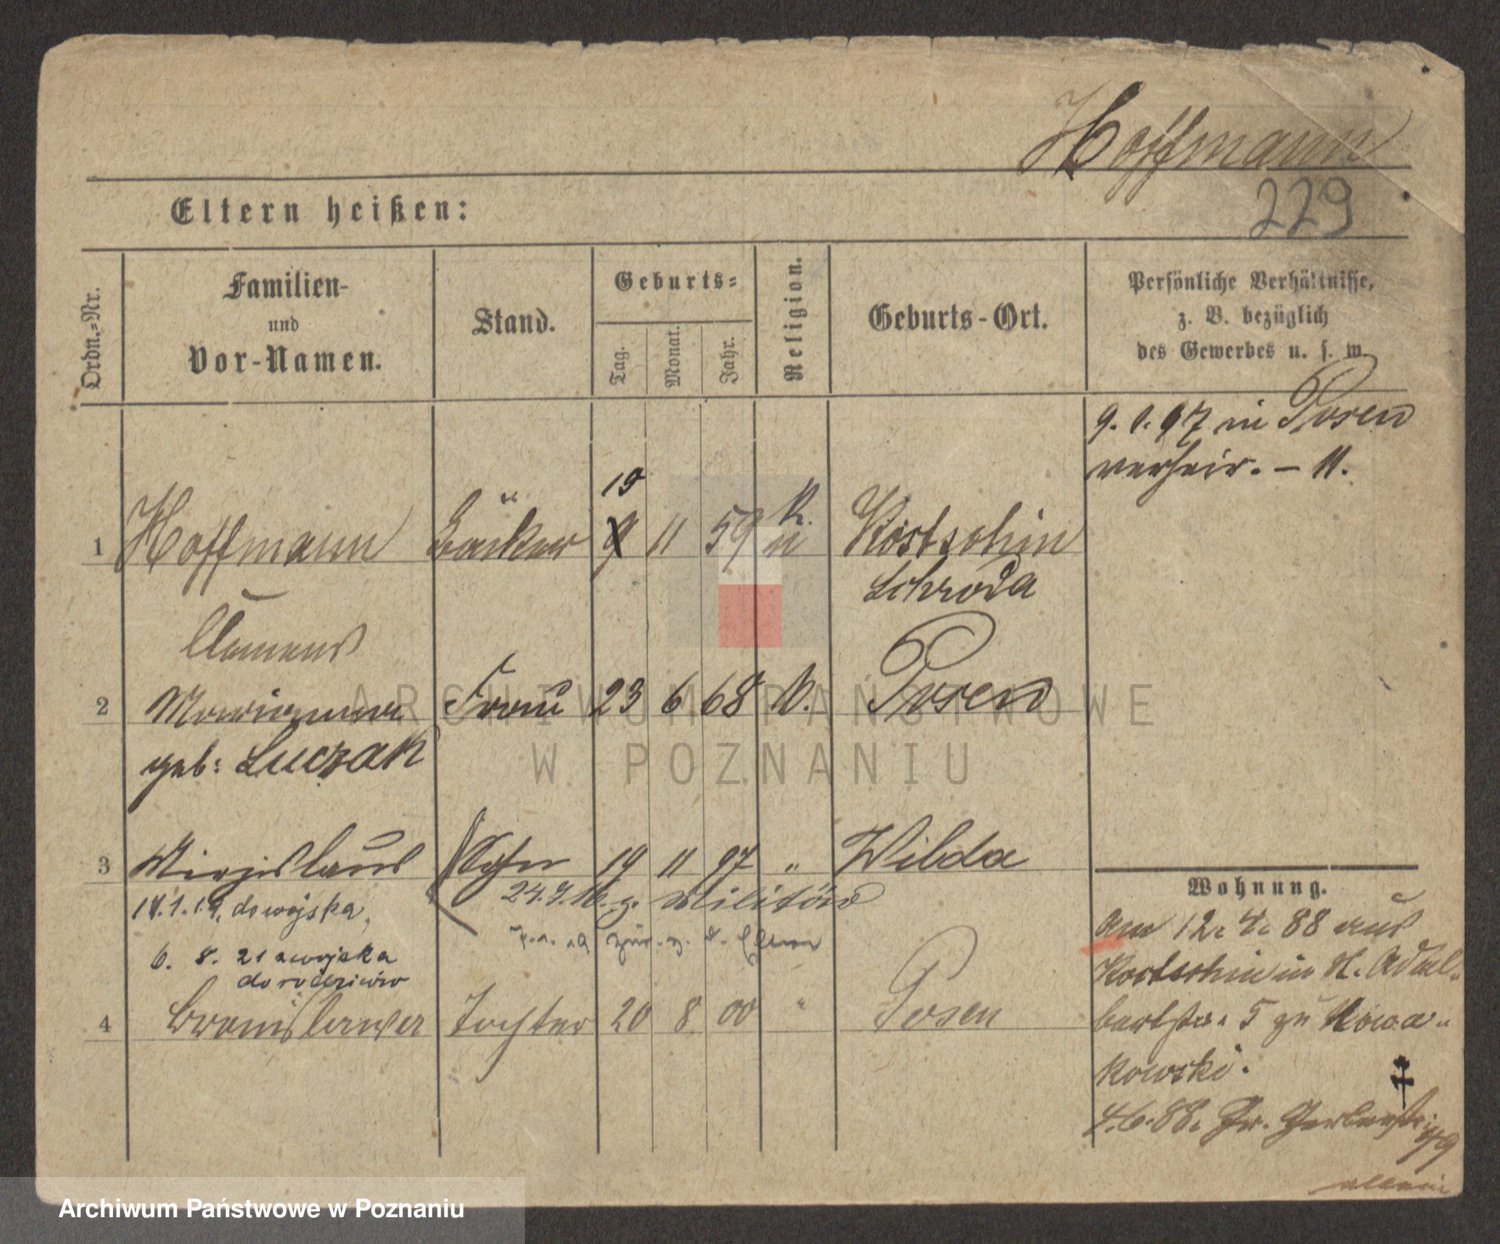 Hoffmann
229
Eltern heißen:
Ordn.=Nr.
Familien-
und
Vor-Namen.
Stand.
Geburts=
Tag.
Monat.
Jahr.
Religion.
Geburts-Ort.
Persönliche Verhältnisse,
z. B. bezüglich
des Gewerbes u. s. w.
9. 1. 97 in Posen
verheir. – 11.
1 Hoffmann Bäcker 19 9 11 59 k. Kostschin
Schroda
Clemens
2 Marianna Frau 23 6 68 k. Posen
geb: Luczak
3 Mirzislaus Sohn 19 11 97 " Wilda
14.1.19. do wojska.
z. Militär
6. 8. 21 z wojska
do rodziców
z. d. Eltern
4 Bronislawa Tochter 20 8 00 " Posen
Wohnung.
am 12. 4. 88 aus
Kostschin in St. Adal-
bertstr. 5 zu Nowa-
kowski.
4.6.88. Gr. Gerberstr. 49
allein
ARCHIWUM PAŃSTWOWE
W POZNANIU
Archiwum Państwowe w Poznaniu